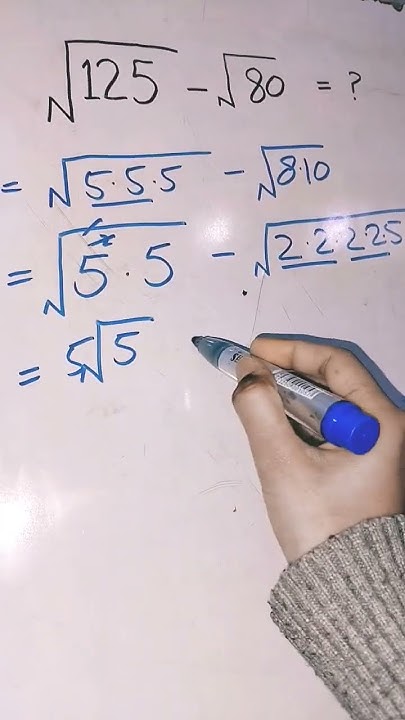 √125 - √80 = ?
= √5·5·5 - √8·10
= √5²·5 - √2·2·2·2·5
= 5√5